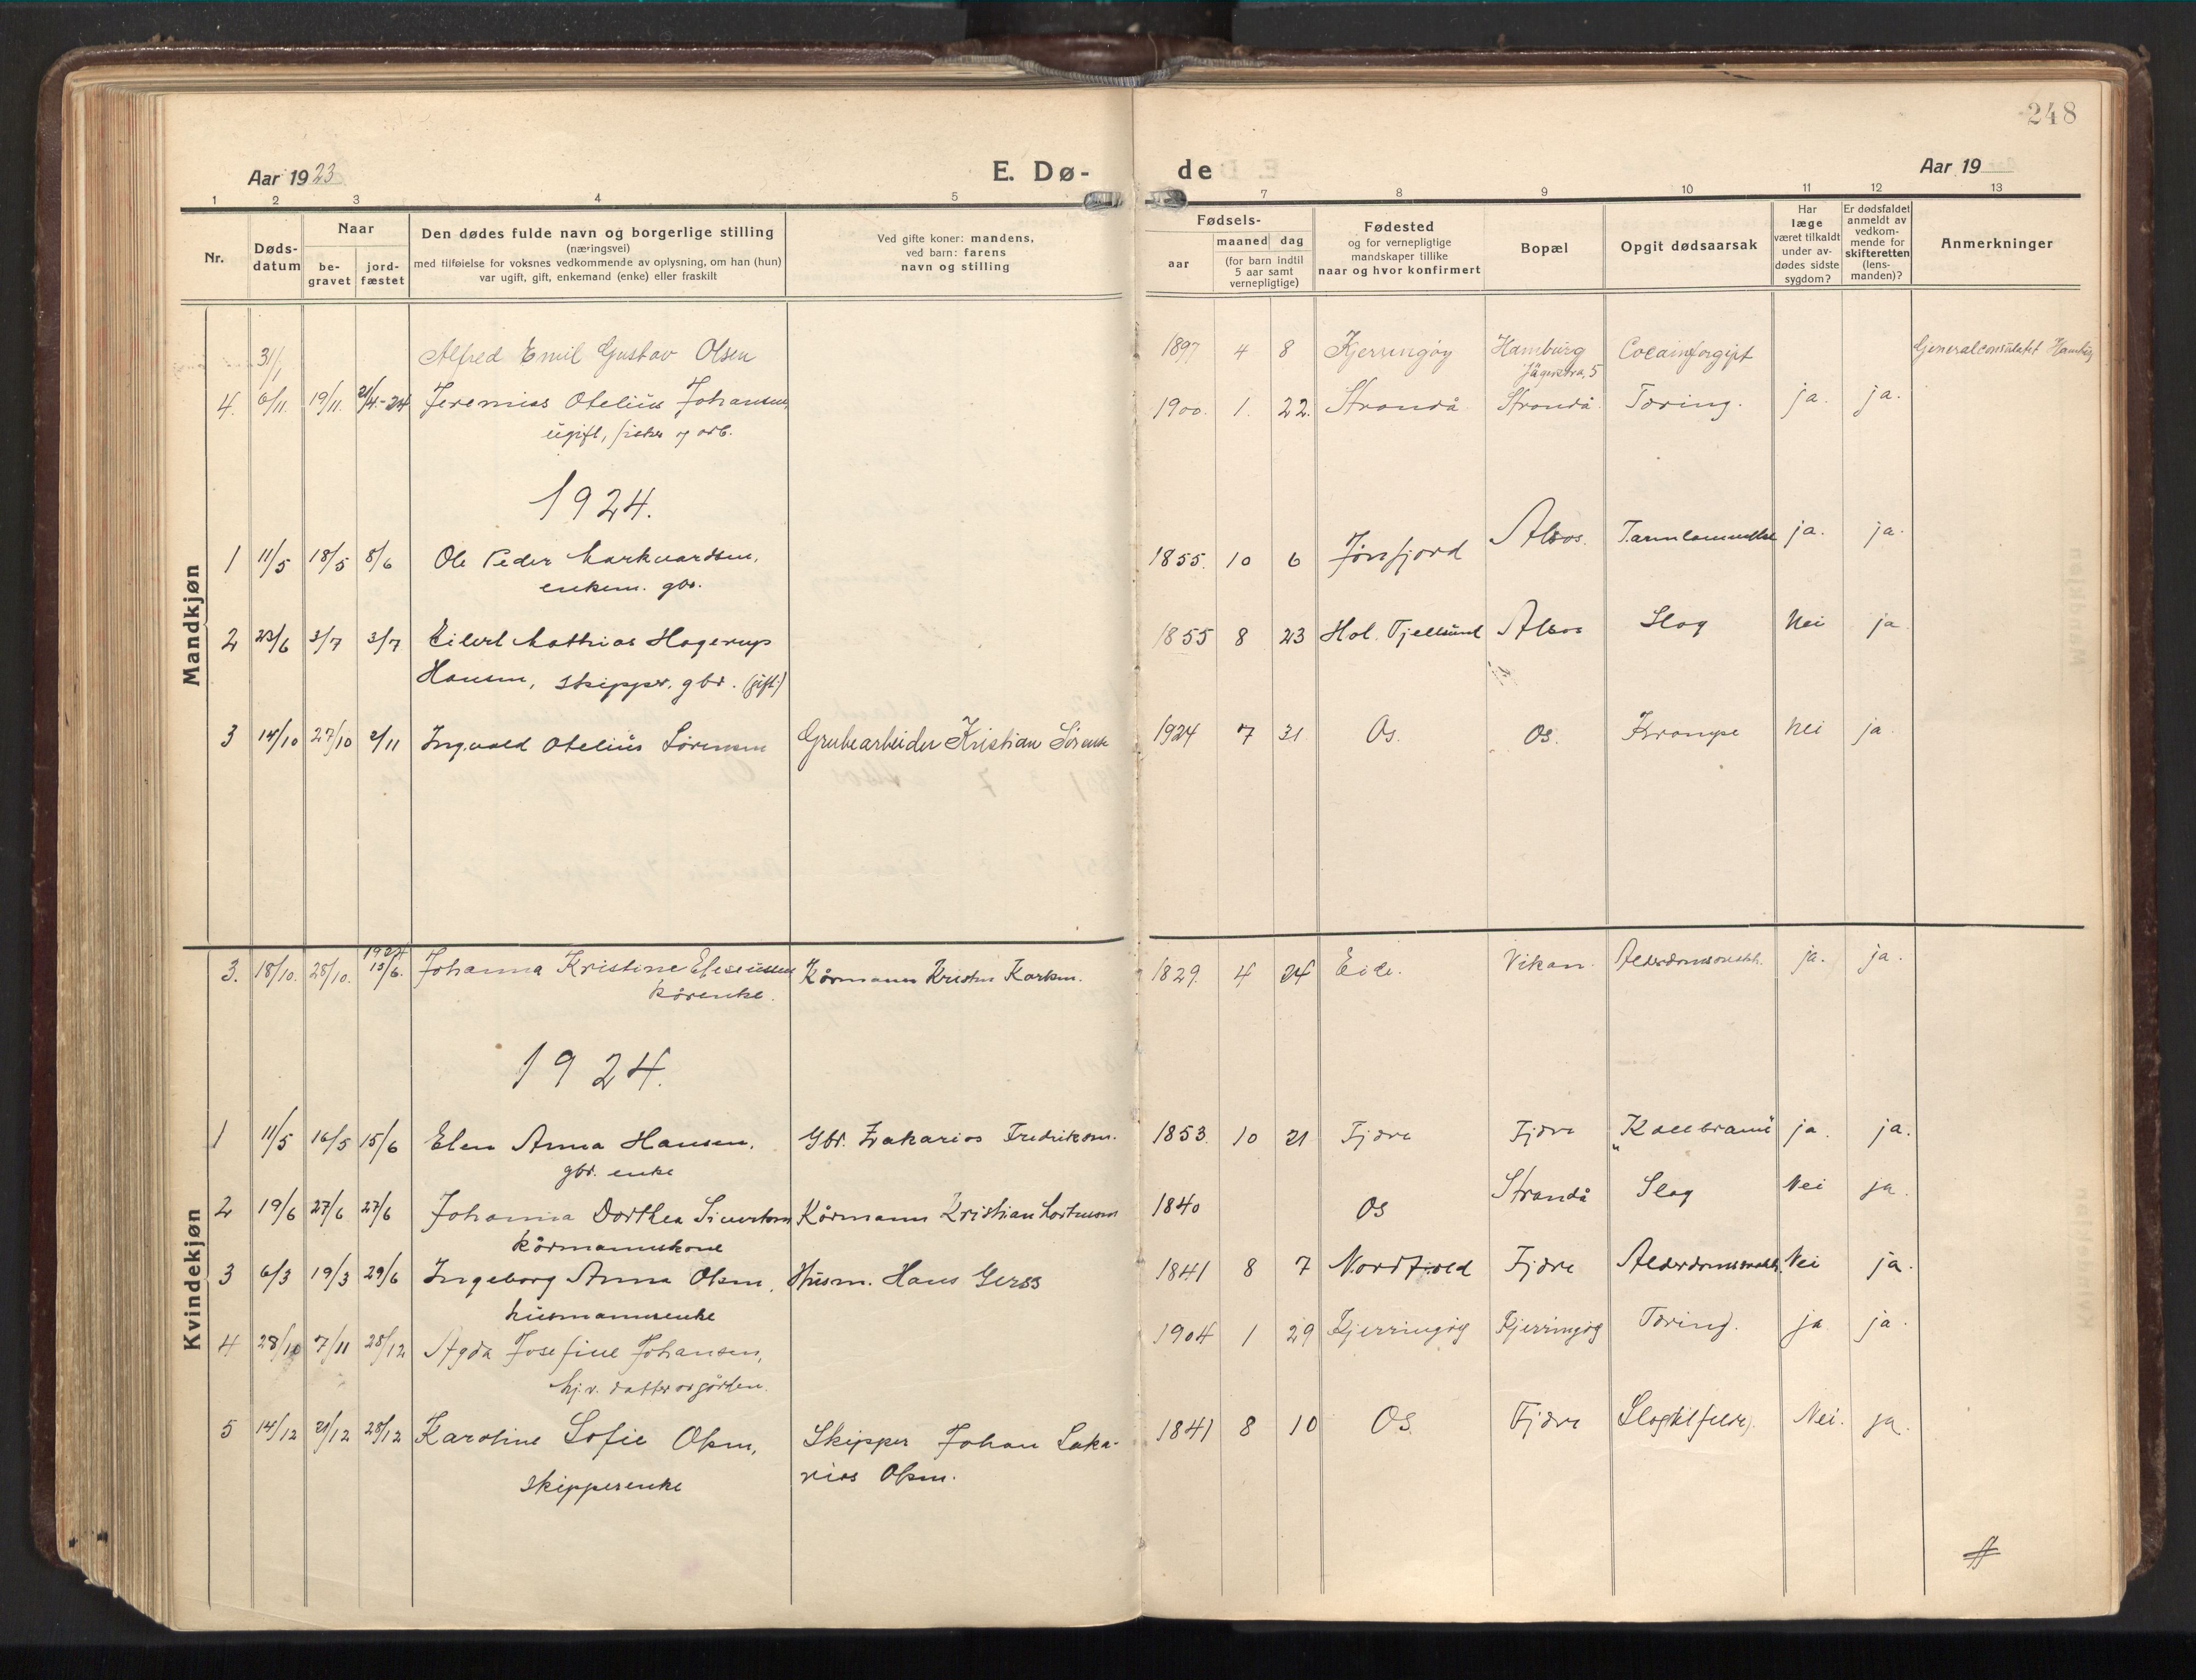 248
Aar 1923
E. Dø-
de
Aar 19
1 2 3 4 5 7 8 9 10 11 12 13
Nr.
Døds-
datum
Naar
be-
gravet
jord-
fæstet
Den dødes fulde navn og borgerlige stilling
(næringsvei)
med tilføielse for voksnes vedkommende av oplysning, om han (hun)
var ugift, gift, enkemand (enke) eller fraskilt
Ved gifte koner: mandens,
ved barn: farens
navn og stilling
Fødsels-
aar
maaned dag
(for barn indtil
5 aar samt
vernepligtige)
Fødested
og for vernepligtige
mandskaper tillike
naar og hvor konfirmert
Bopæl
Opgit dødsaarsak
Har
læge
været tilkaldt
under av-
dødes sidste
sygdom?
Er dødsfaldet
anmeldt av
vedkom-
mende for
skifteretten
(lens-
manden)?
Anmerkninger
Mandkjøn
31/1 Alfred Emil Gustav Olsen 1897 4 8 Kjerringøy Hamburg Cocainforgift Generalconsulatet Hamburg
5
4. 6/11 19/11 21/4-24 Jeremias Otelius Johansen, 1900. 1. 22. Strandå Strandå Tæring. ja. ja.
ugift, fisker og arb.
1924.
1 11/5 18/5 8/6 Ole Peder Markvardsen, 1855. 10 6 Alsos. ja. ja.
enkem. gbr.
2 23/6 3/7 3/7 Eilert Mathias Hagerup 1855 8 23 Hol. Tjellsund Alsos Slag Nei ja
Hansen, skipper, gbr. (gift)
3 14/10 27/10 2/11 Ingvald Otelius Sørensen Grubearbeider Kristian Sørens 1924 7 31 Os. Os. Krampe Nei ja
Kvindekjøn
1924
3. 18/10. 28/10. 15/6. Johanna Kristine Eliseussen Kårmann 1829. 4 24 Eide. Vikan. ja. ja.
kårenke.
1924.
1 11/5 16/5 15/6 Elen Anna Hansen, Gbr. Zakarias Fredriksen. 1853. 10 21 Fjære Fjære "Kallbrann" ja. ja.
gbr. enke
2 19/6 27/6 27/6 Johanna Dorthea Sivertsen Kårmann Kristian 1840 Os Strandå Slag Nei ja.
kårmannskone
3 6/3 19/3 29/6 Ingeborg Anna Olsen, Husm. Hans 1841 8 7 Nordfold Fjære Nei ja.
husmannsenke
4 28/10 7/11 28/12 Agda Josefine Johansen, 1904 1 29 Kjerringøy Kjerringøy Tæring. ja ja.
hj.v. datter av gården.
5 14/12 21/12 28/12 Karoline Sofie Olsen, Skipper Johan Saka- 1841 8 10 Os. Fjære Slagtilfelde. Nei. ja.
skipperenke rias Olsen.